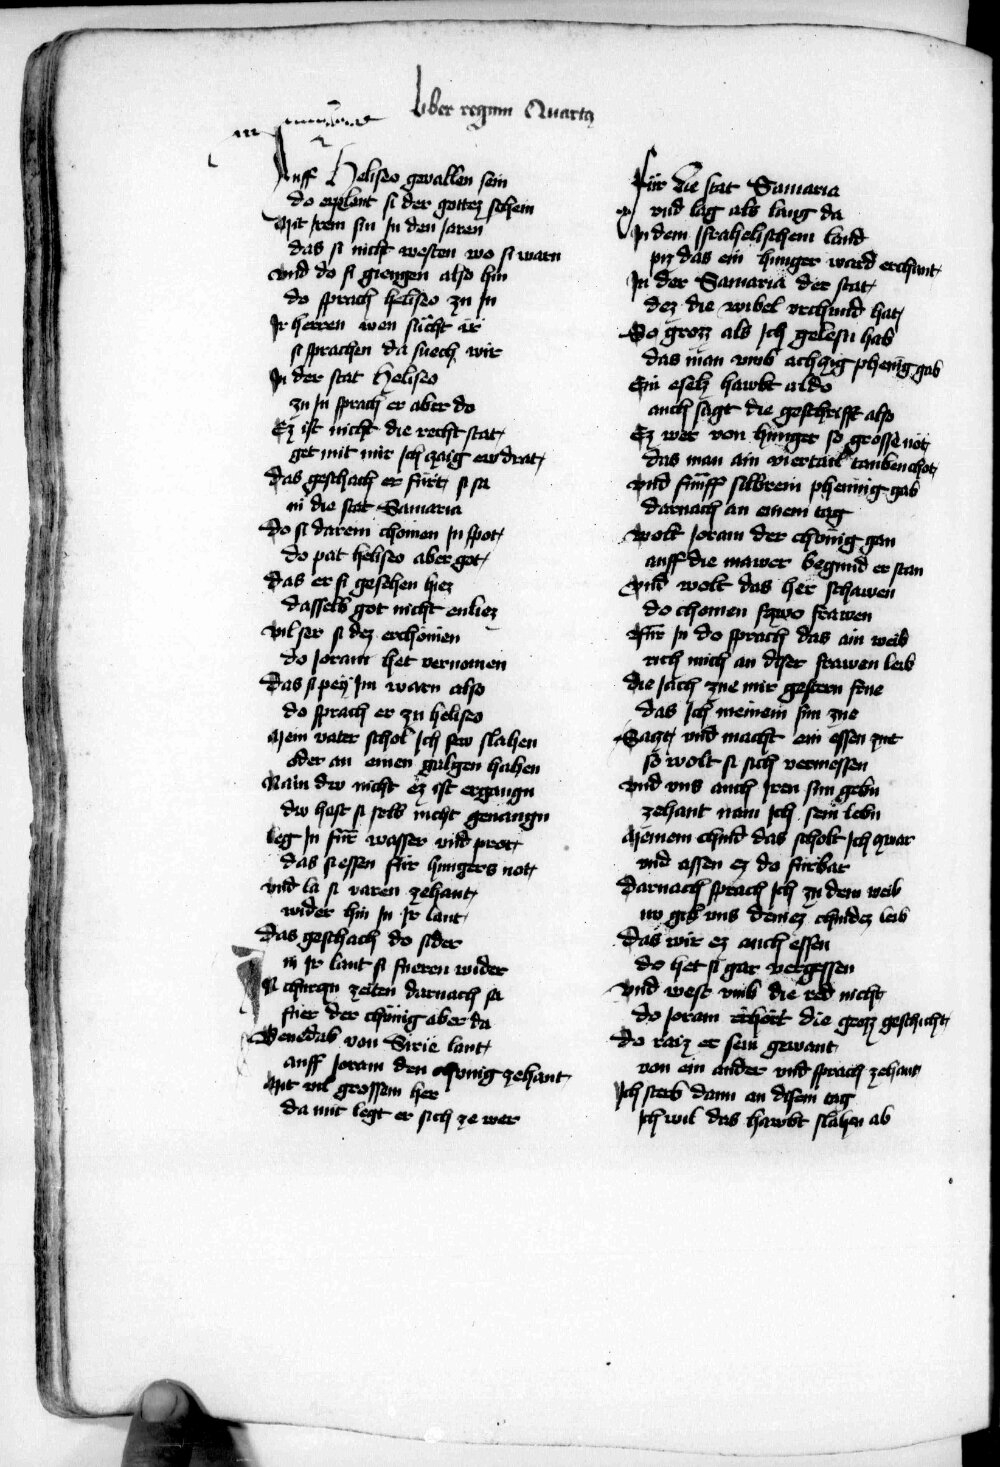 Liber regum Quartus
Auff Heliseo gevallen sein
do erplent si der gottez schein
Mit Irem sin In den Jaren
das si nicht westen wo si warn
vnd do si giengen also hin
do sprach heliseo zu In
Ir herren wen sücht ir
si sprachen da suech wir
In der stat Heliseo
zu In sprach er aber do
Ez ist nicht die recht stat
get mit mir Ich zaig ew drat
das geschach er fürt si sa
in die stat Samaria
do si darein chomen In spot
do pat heliseo aber got
das er si gesehen hiez
dasselb got nicht enliez
vil ser si dez erchömen
do Joram het vernomen
das si pey Im warn also
do sprach er zu heliseo
Mein vater schol Ich sew slahen
oder an einen galgen hahen
Nain dw nicht ez ist ergangn
dw hast si selb nicht genangn
leg In für wasser vnd prot
das si essen für hungers not
vnd la si varen zehant
wider hin In Ir lant
das geschach do sider
in Ir lant si fueren wider
In churczn zeiten darnach sa
fuer der chünig aber da
Benedab von Sirie lant
auff Joram den chunig zehant
Mit vil grossem her
da mit legt er sich ze wer
Für die stat Samaria
vnd lag als lang da
In dem Israhelischem land
piz das ein hunger ward erchant
In der Samaria der stat
dez die wibel vrchund hat
So grozz als Ich gelesn hab
das man vmb achzig phenig gab
Ein esels hawbt aldo
auch sagt die geschrifft also
Ez wer von hunger so grosse not
das man ain viertail taubenchot
vnd fünff silbrein phennig gab
darnach an einem tag
wolt Joram der chönig gan
auff die mawer begund er stan
vnd wolt das her schawen
do chomen zwo frawen
für In do sprach das ain weib
rich mich an diser frawen leib
die Iach zue mir gestern frue
das Ich meinem sun zue
Sagt vnd macht ein essen zut
so wolt si sich vermessen
vnd vns auch Iren sun gebn
zehant nam Ich sein lebn
Meinem chind das scholt Ich zwar
vnd assen ez do fürbar
darnach sprach Ich zu dem weib
nv gib vns deinez chindez leib
das wir ez auch essen
do het si gar vergessen
vnd west vmb die red nicht
do Joram erhort die grozz geschicht
do raiz er sein gewant
von ein ander vnd sprach zehant
Ich sterb dann an disem tag
Ich wil das hawbt slahen ab